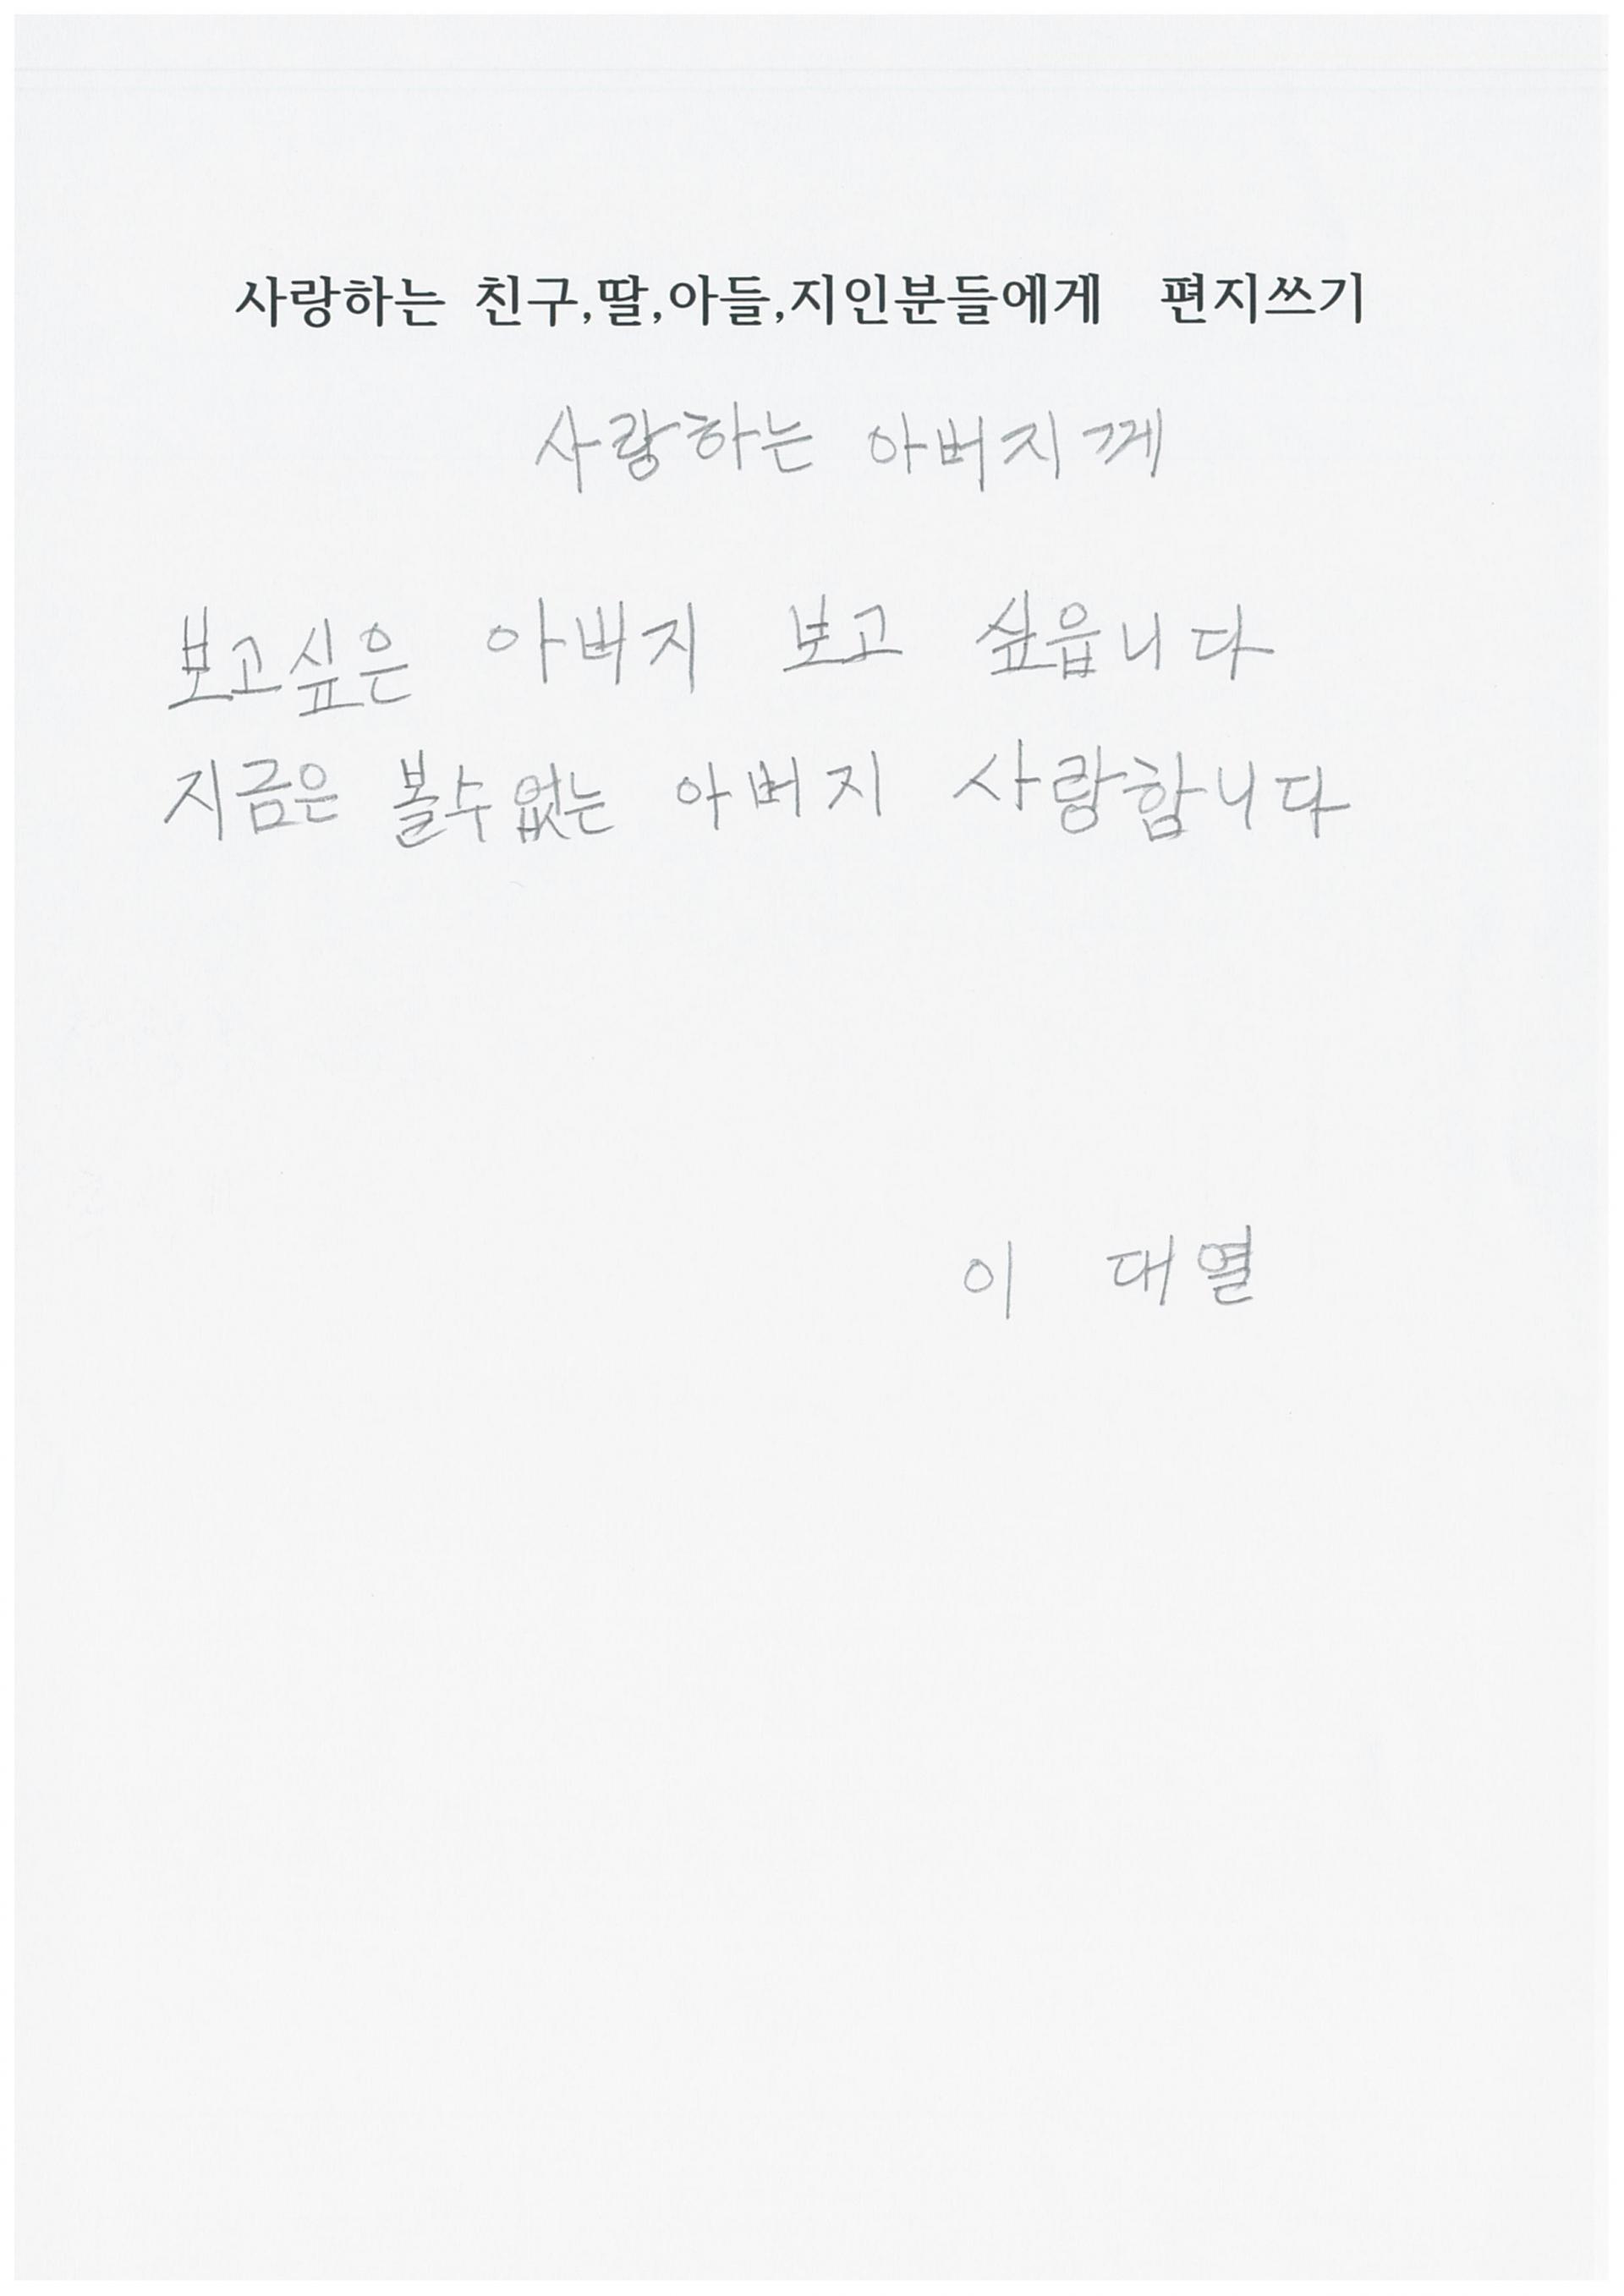 사랑하는 친구,딸,아들,지인분들에게 편지쓰기
사랑하는 아버지께
보고싶은 아버지 보고 싶읍니다
지금은 볼수없는 아버지 사랑합니다
이 대열